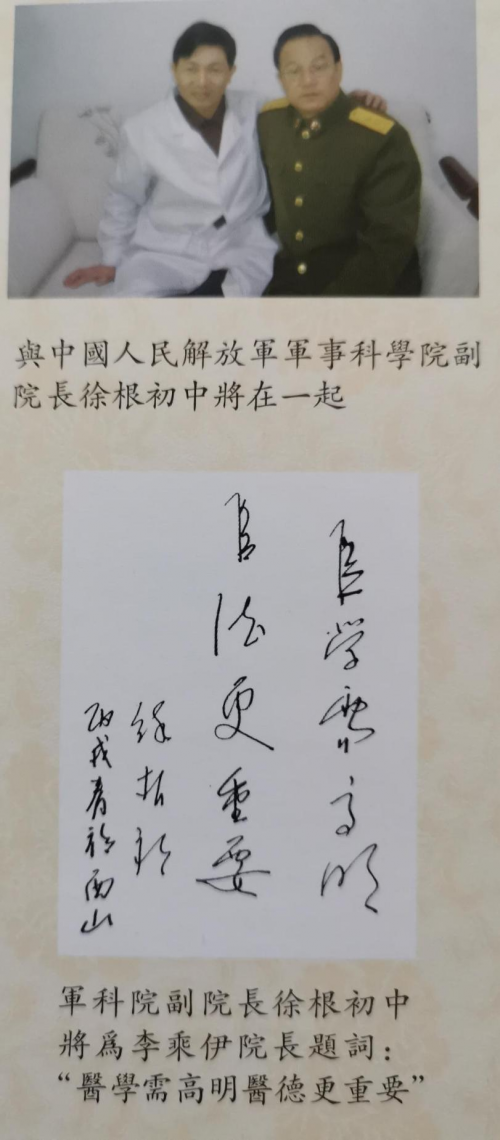 與中國人民解放軍軍事科學院副
院長徐根初中將在一起
醫学需高明
醫德更重要
徐根初
丙戌春於西山
軍科院副院長徐根初中
將爲李乘伊院長題詞：
“醫學需高明醫德更重要”